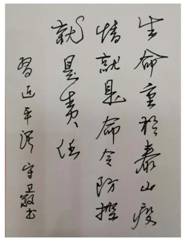 生命重於泰山疫
情就是命令防控
就是责任
習近平语